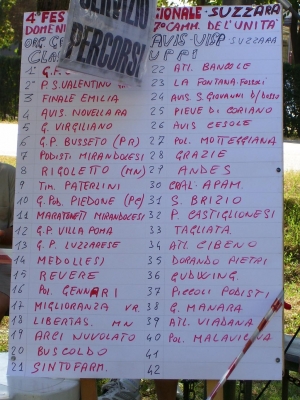 4° FES IONALE - SUZZARA
DOMENI 7° CAMM. DELL'UNITA'
ORG. AVIS-UISP SUZZARA
CLA UFFI
1° G.P.
2° P.S. VALENTINO
3° FINALE EMILIA
4 AVIS. NOVELLARA
5 G. VIRGILIANO
6 G.P. BUSSETO (PR)
7 PODISTI MIRANDOLESI
8 RIGOLETTO (MN)
9 TIM. PATERLINI
10 G. POD. PIEDONE (PC)
11 MARATONETI MIRANDOLESI
12 G.P. VILLA POMA
13 G.P. LUZZARESE
14 MEDOLLESI
15 REVERE
16 POL. GENNARI
17 MIGLIORANZA VR.
18 LIBERTAS. MN
19 ARCI NUVOLATO
20 BUSCOLDO
21 SINTOFARM.
22 ATL. BANCOLE
23 LA FONTANA
24 AVIS. S. GIOVANNI b/bosco
25 PIEVE DI CORIANO
26 AVIS CESOLE
27 POL. MOTTEGGIANA
28 GRAZIE
29 ANDES
30 CRAL-APAM.
31 S. BRIZIO
32 P. CASTIGLIONESI
33 TAGLIATA
34 ATL CIBENO
35 DORANDO PIETRI
36 GUDWING
37 PICCOLI PODISTI
38 G. MANARA
39 ATL. VIADANA
40 POL. MALAVICINA
41
42